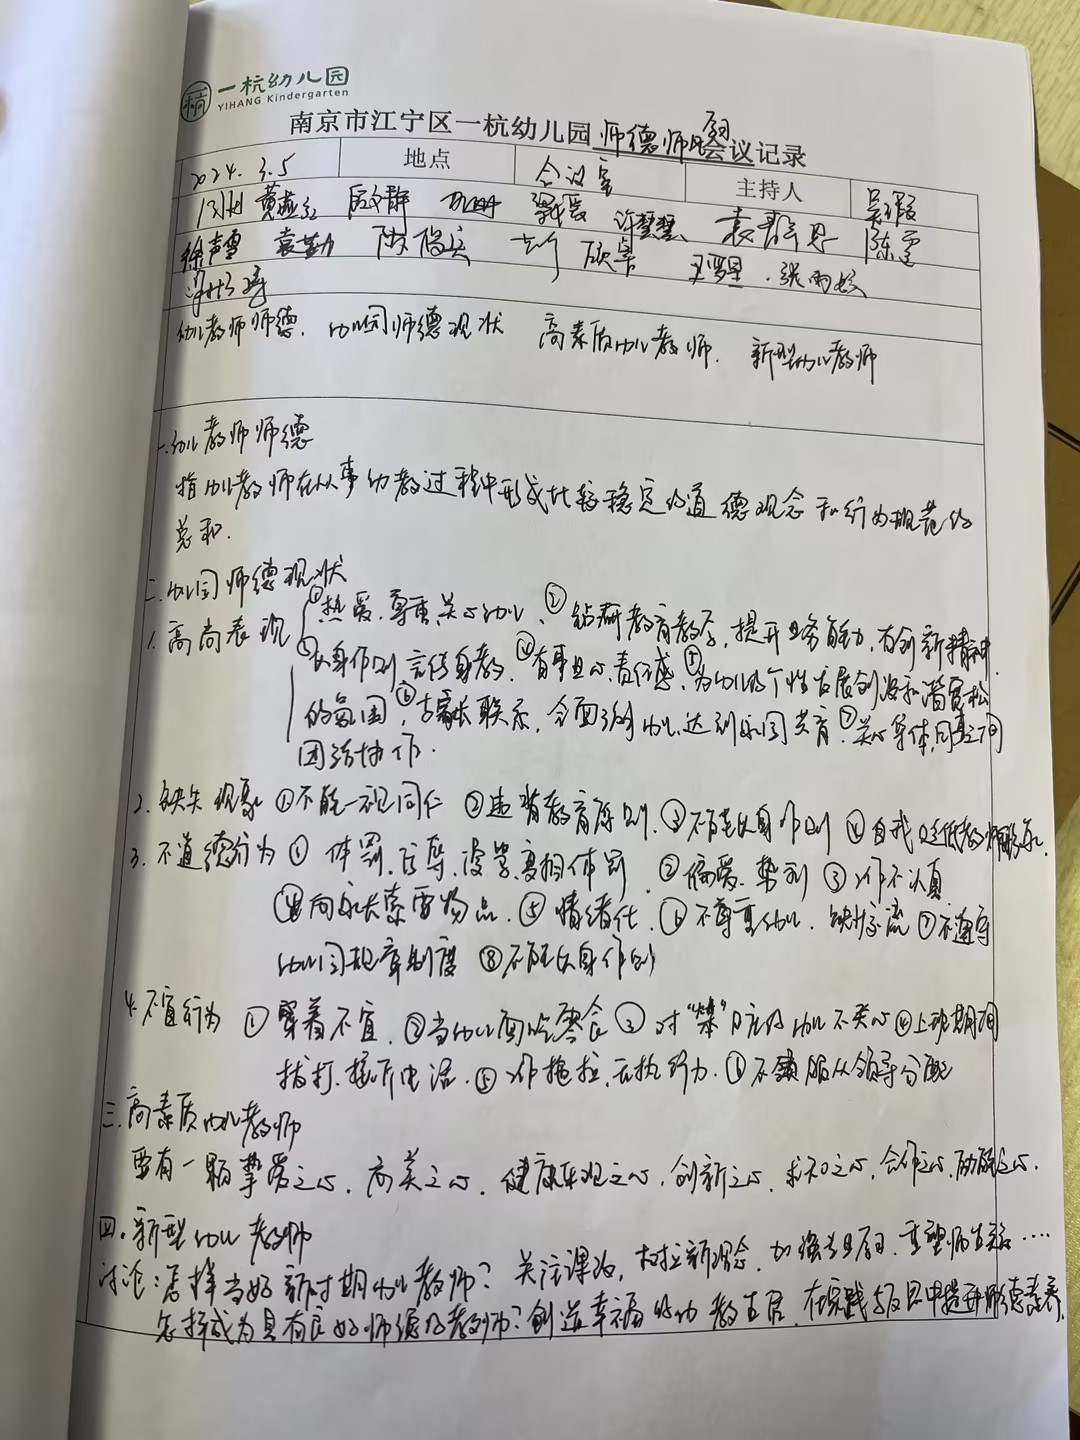 一杭幼儿园
YIHANG Kindergarten
南京市江宁区一杭幼儿园师德师风会议记录
2024.3.5 地点 会议室 主持人
许慧慧 陈雯
徐声雪 袁勤 张雨
幼儿教师师德. 幼儿园师德现状 高素质幼儿教师. 新型幼儿教师
一.幼儿教师师德
指幼儿教师在从事幼教过程中形成比较稳定的道德观念和行为规范的
总和.
二.幼儿园师德现状
1.高尚表现 ①热爱.尊重.关心幼儿、②钻研教育教学,提升业务能力,有创新精神
③以身作则 言传身教.④有事业心、责任感、⑤为幼儿的个性发展创设和谐宽松
的氛围,⑥与家长联系,全面了解幼儿,达到家园共育.⑦关心集体,同事之间
团结协作.
2.缺失现象 ①不能一视同仁 ②违背教育原则.③不能以身作则 ④自我贬低教师形象.
3.不道德行为 ① 体罚.辱.变相体罚.②偏爱.势利 ③工作不认真
④向家长索要物品.⑤情绪化.⑥不尊重幼儿.缺少交流 ⑦不遵守
幼儿园规章制度 ⑧不能以身作则
4.不宜行为 ①穿着不宜.②当幼儿面吃零食 ③对“”幼儿不关心 ④上班期间
拨打.接听电话.⑤工作拖拉,无执行力.⑥不服从领导分配
三.高素质幼儿教师
要有一颗挚爱之心.高美之心.健康乐观之心,创新之心.求知之心,合作之心.
四.新型幼儿教师
讨论:怎样当好新时期幼儿教师? 关注课改,树立新观念,加强学习.重塑师生关系……
怎样成为具有良好师德的教师?创造幸福的幼教生活.在实践与反思中提升师德素养.